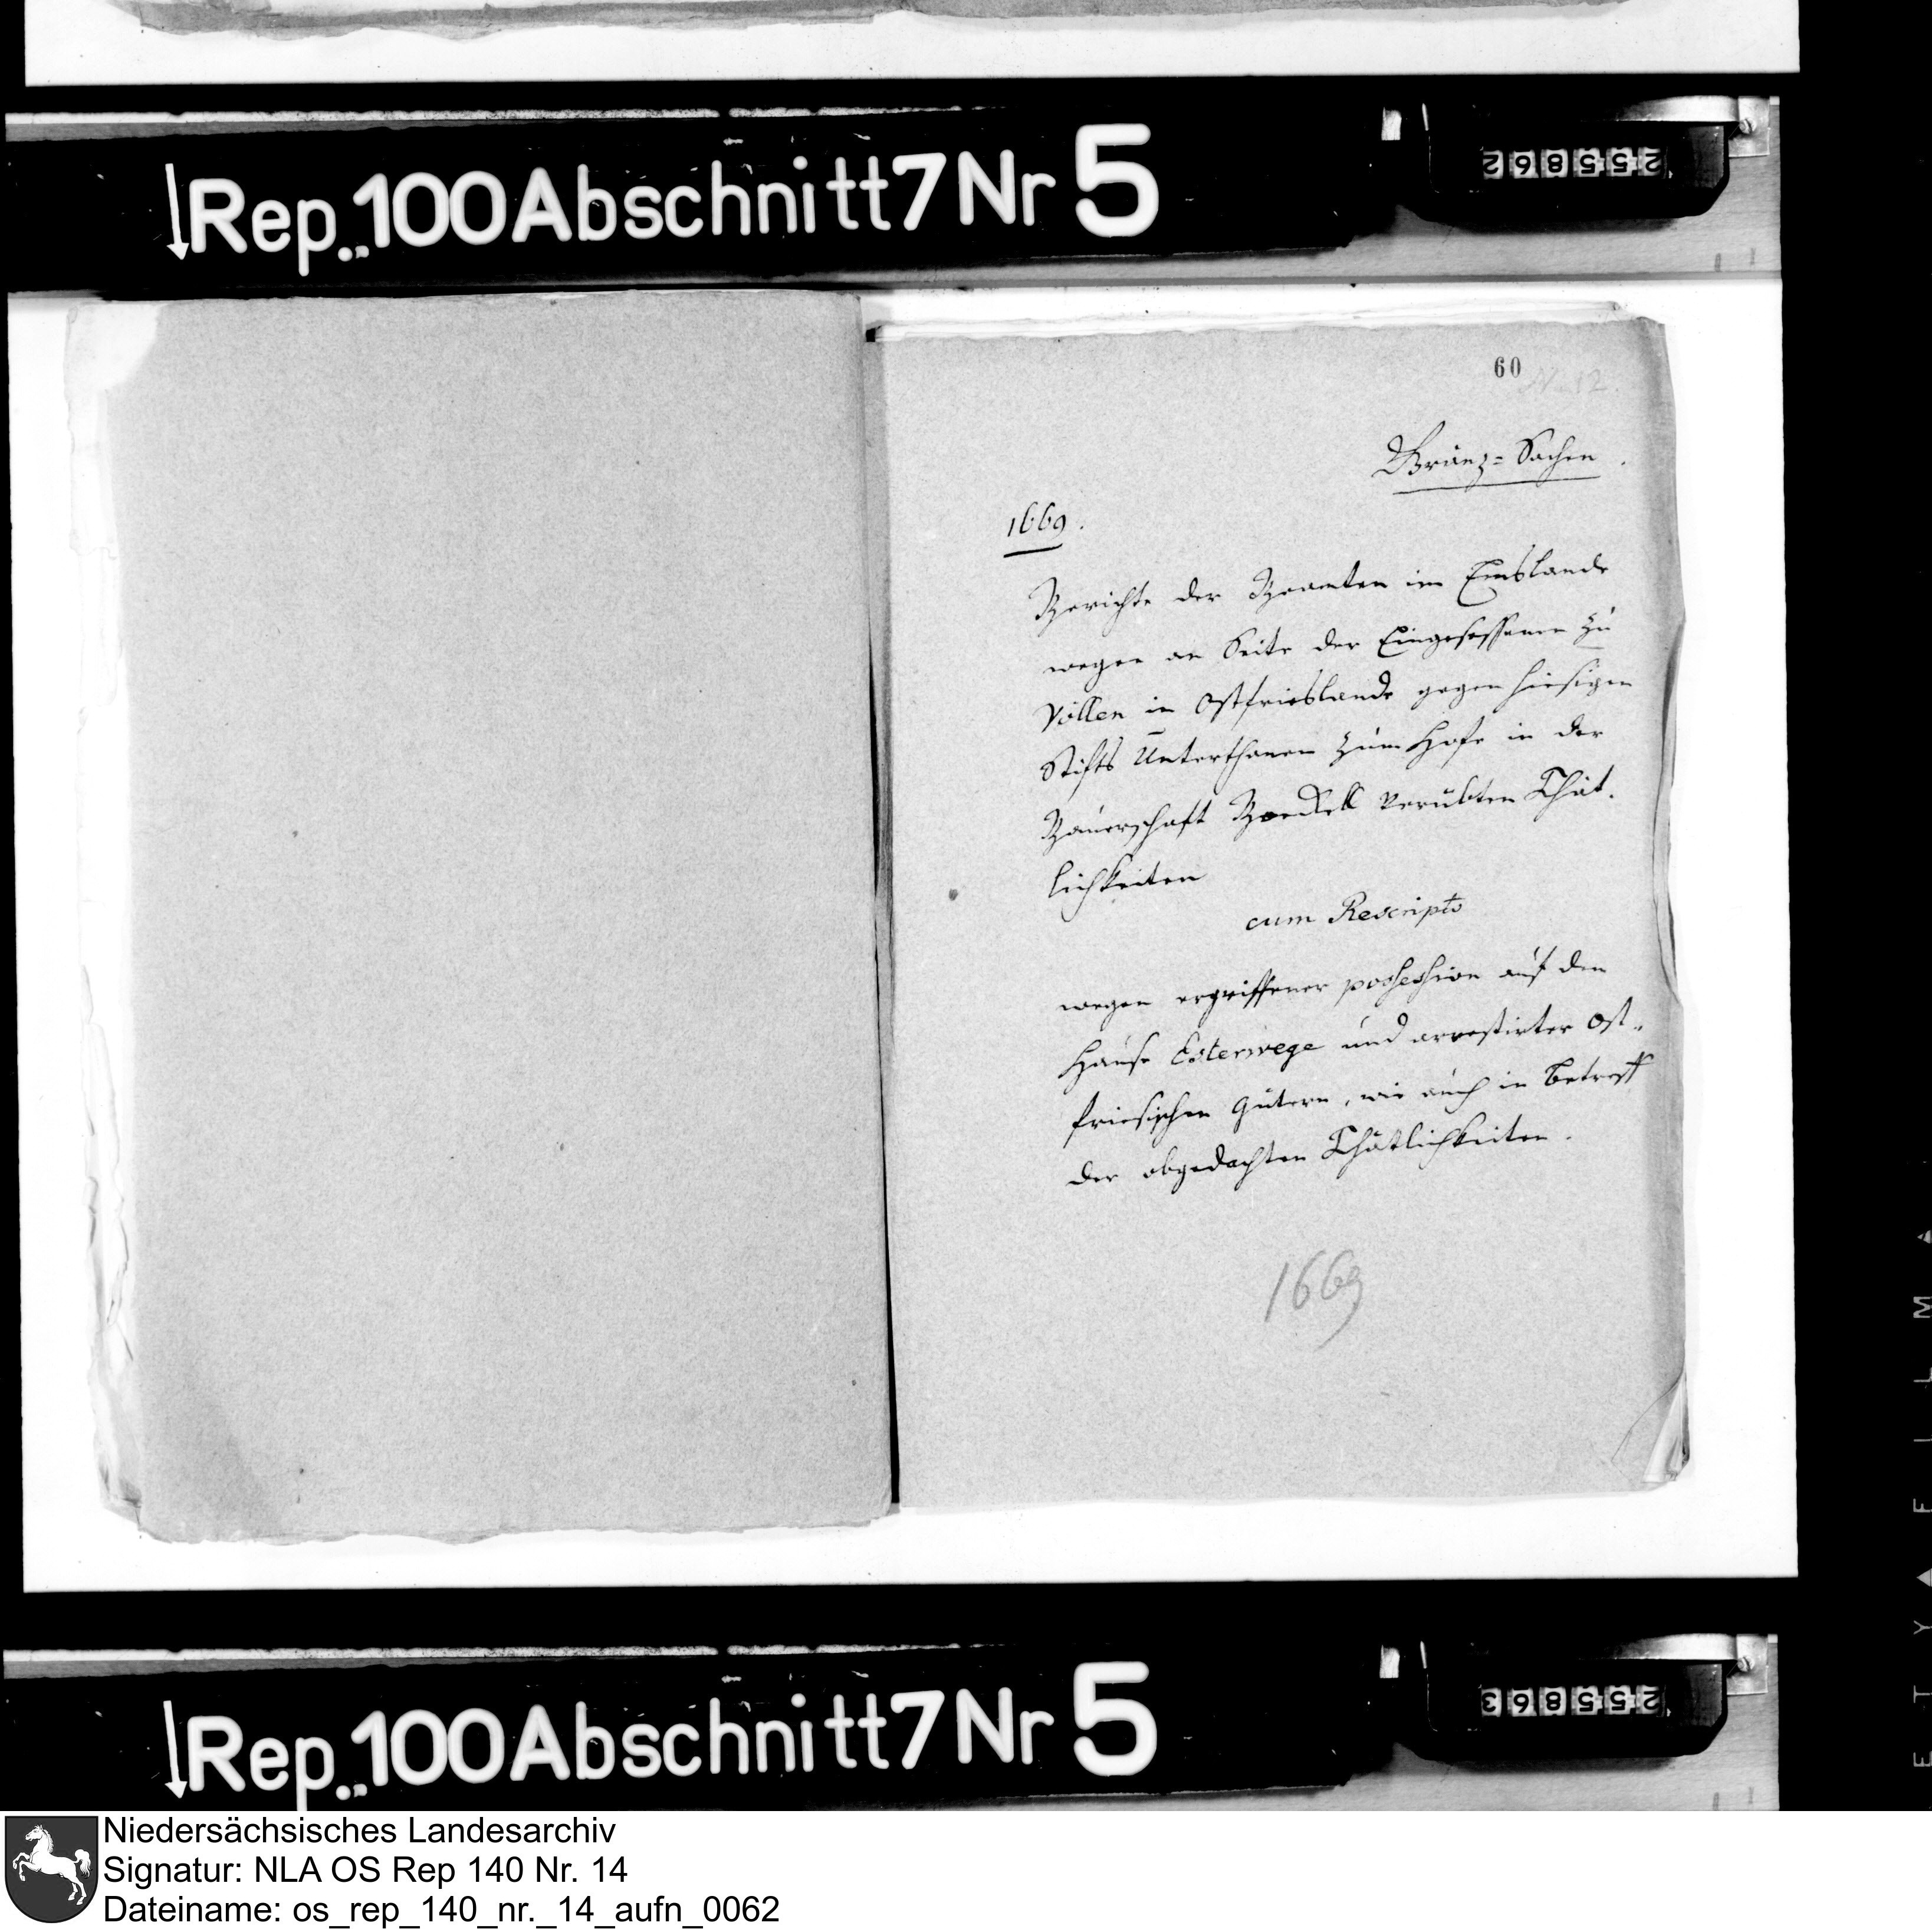 Rep. 100 Abschnitt 7 Nr 5
255862
60
N. 12.
Gränz=Sachen.
1669.
Berichte der Beamten im Emslande
wegen an Seite der Eingesessenen zu
Völlen in Ostfrieslande gegen hiesigen
Stifts Unterthanen zum Hofe in der
Bauerschaft verübten Thät-
lichkeiten
cum Rescripto
wegen ergriffener possession auf dem
Hause Esterwege und arrestirter Ost-
friesischen Gütern, wie auch in Betreff
der obgedachten Thätlichkeiten.
1669
Rep. 100 Abschnitt 7 Nr 5
255863
Niedersächsisches Landesarchiv
Signatur: NLA OS Rep 140 Nr. 14
Dateiname: os_rep_140_nr._14_aufn_0062